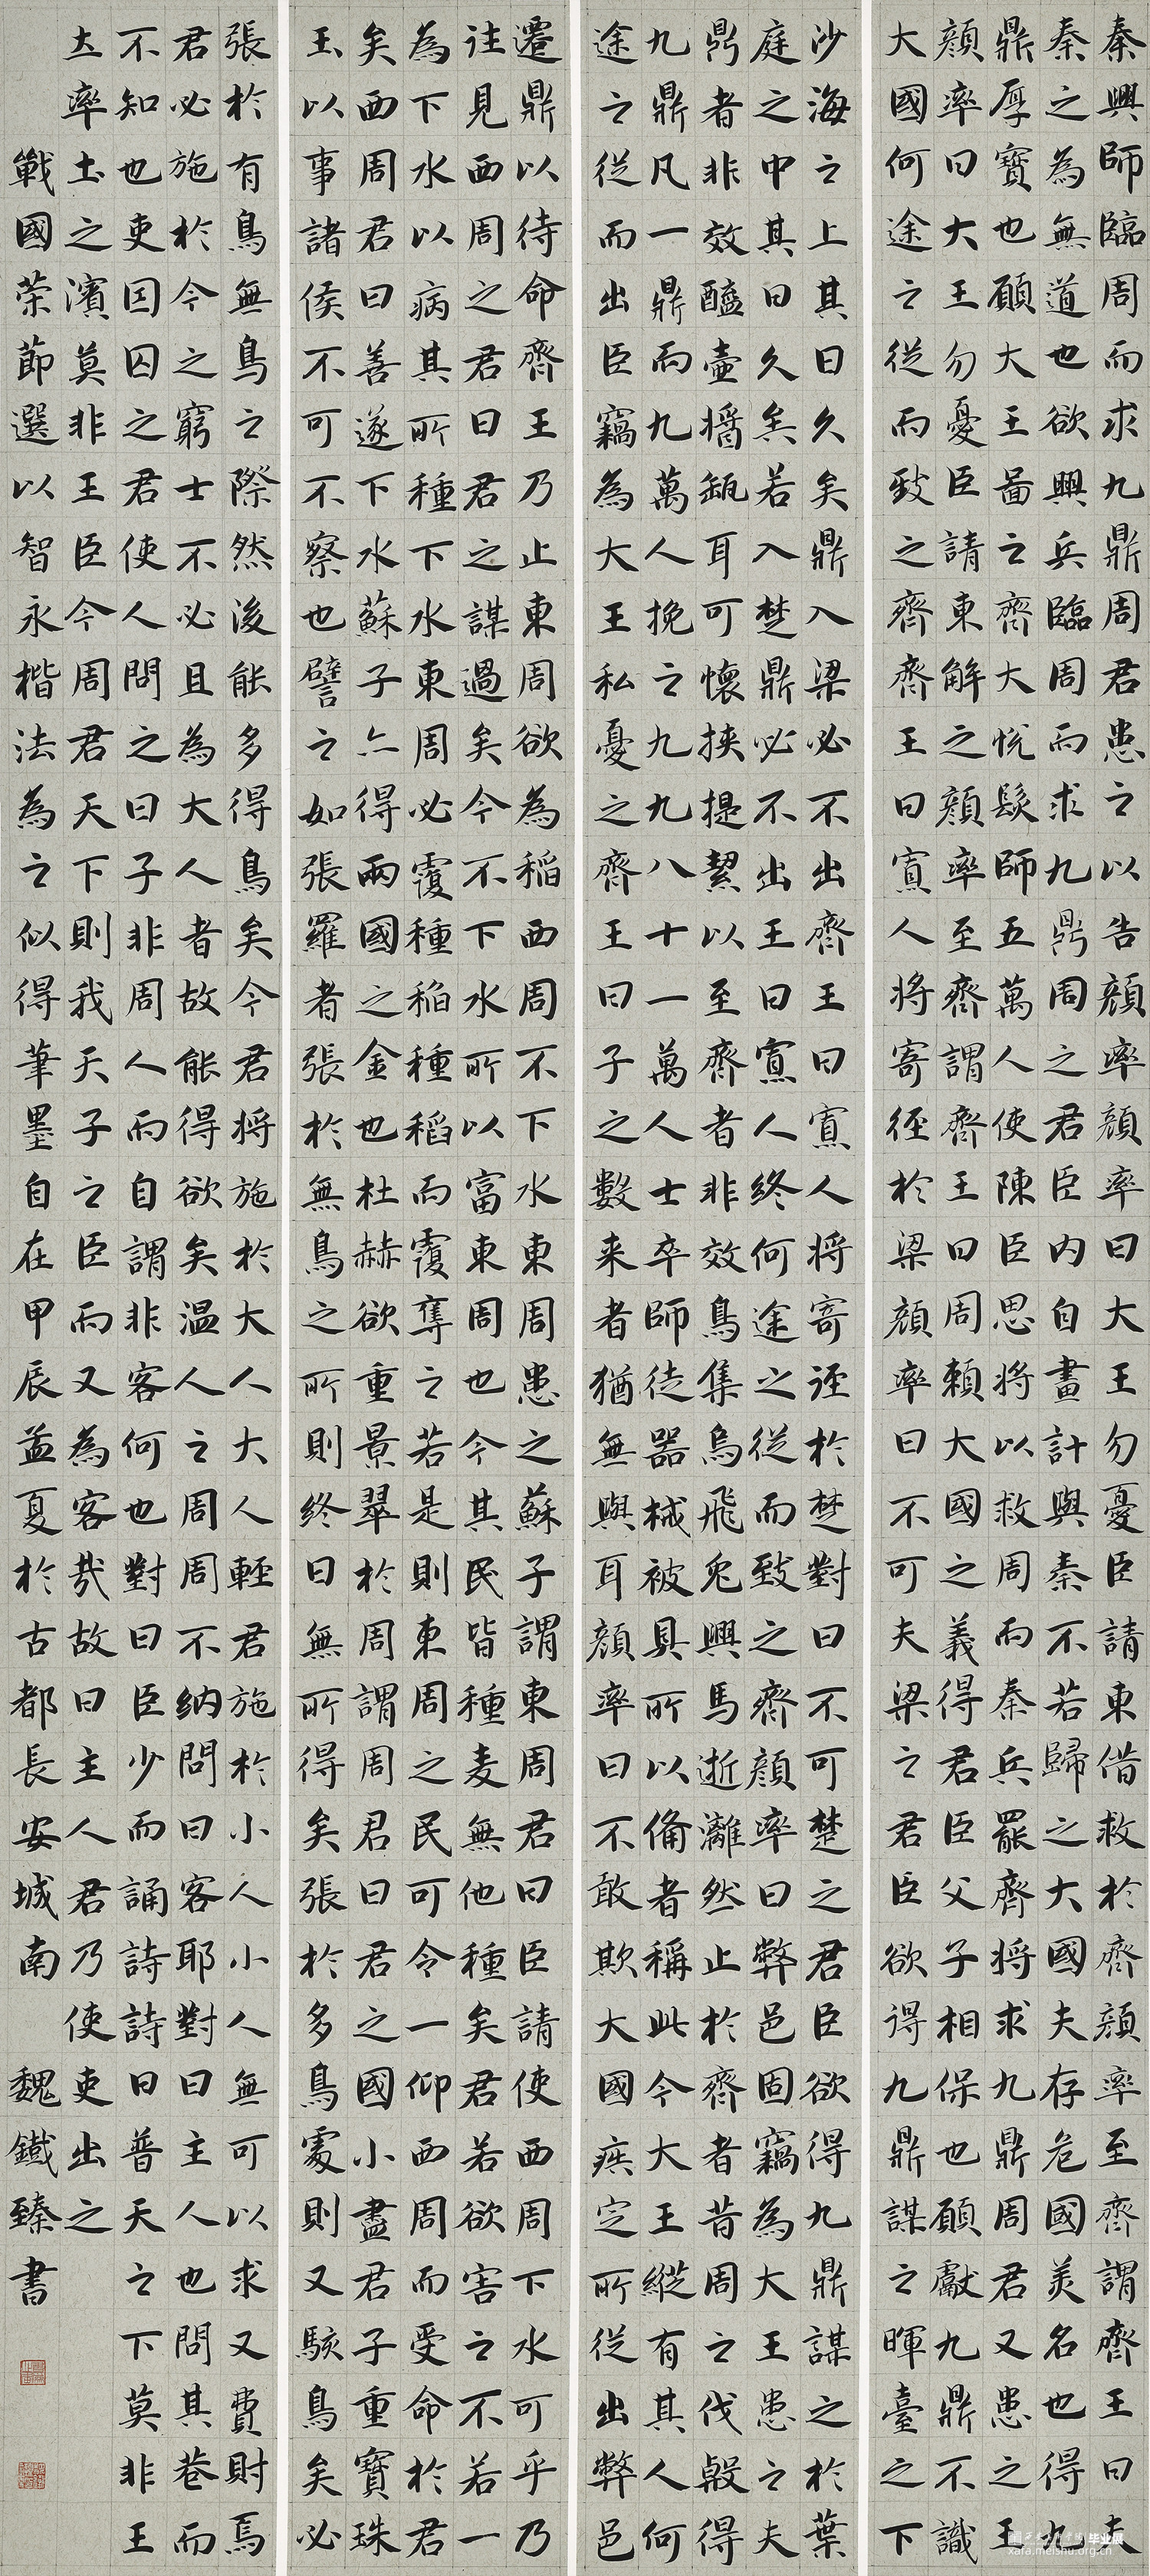 秦興師臨周而求九鼎周君患之以告顏率顏率曰大王勿憂臣請東借救於齊顏率至齊謂齊王曰夫
秦之為無道也欲興兵臨周而求九鼎周之君臣內自畫計與秦不若歸之大國夫存危國美名也得九
鼎厚寶也願大王啚之齊大悅髮師五萬人使陳臣思將以救周而秦兵罷齊將求九鼎周君又患之王
顏率曰大王勿憂臣請東解之顏率至齊謂齊王曰周賴大國之義得君臣父子相保也願獻九鼎不識
大國何途之從而致之齊齊王曰寡人將寄徑於梁顏率曰不可夫梁之君臣欲得九鼎謀之暉臺之下
沙海之上其日久矣鼎入梁必不出齊王曰寡人將寄逕於楚對曰不可楚之君臣欲得九鼎謀之於葉
庭之中其日久矣若入楚鼎必不出王曰寡人終何途之從而致之齊顏率曰弊邑固竊為大王患之夫
鼎者非效醯壺醬甀耳可懷挾提挈以至齊者非效鳥集烏飛兔興馬逝灕然止於齊者昔周之伐殷得
九鼎凡一鼎而九萬人挽之九九八十一萬人士卒師徒器械被具所以備者稱此今大王縱有其人何
途之從而出臣竊為大王私憂之齊王曰子之數来者猶無與耳顏率曰不敢欺大國疾定所從出弊邑
遷鼎以待命齊王乃止東周欲為稻西周不下水東周患之蘇子謂東周君曰臣請使西周下水可乎乃
往見西周之君曰君之謀過矣今不下水所以富東周也今其民皆種麦無他種矣君若欲害之不若一
為下水以病其所種下水東周必覆種稻種稻而覆奪之若是則東周之民可令一仰西周而受命於君
矣西周君曰善遂下水蘇子亦得兩國之金也杜赫欲重景翠於周謂周君曰君之國小盡君子重寶珠
玉以事諸侯不可不察也譬之如張羅者張於無鳥之所則終日無所得矣張於多鳥處則又駭鳥矣必
張於有鳥無鳥之際然後能多得鳥矣今君將施於大人大人輕君施於小人小人無可以求又費財焉
君必施於今之窮士不必且為大人者故能得欲矣溫人之周周不納問曰客耶對曰主人也問其巷而
不知也吏因囚之君使人問之曰子非周人而自謂非客何也對曰臣少而誦詩詩曰普天之下莫非王
土率土之濱莫非王臣今周君天下則我天子之臣而又為客哉故曰主人君乃使吏出之
戰國策節選以智永楷法為之似得筆墨自在甲辰孟夏於古都長安城南 魏鐵臻書
毕业展
xafa.meishu.org.cn